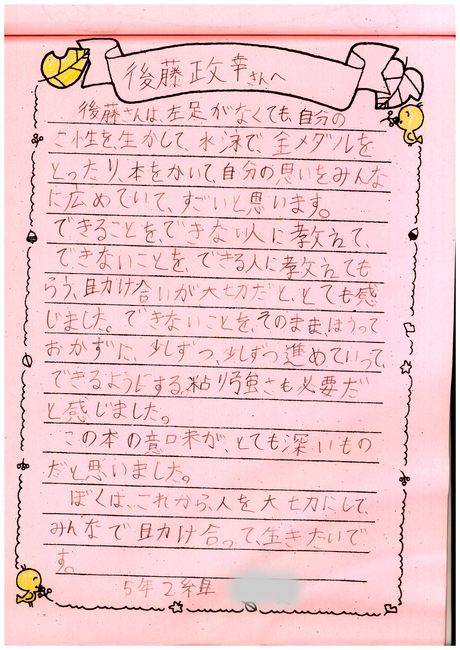 後藤政幸さんへ
後藤さんは、左足がなくても、自分の
こ性を生かして、水泳で、金メダルを
とったり、本をかいて、自分の思いをみんな
に広めていて、すごいと思います。
できることを、できない人に教えて、
できないことを、できる人に教えても
らう、助け合いが大切だと、とても感
じました。できないことを、そのまま、ほうって
おかずに、少しずつ、少しずつ進めていって、
できるようにする、粘り強さも必要だ
と感じました。
この本の意味が、とても深いもの
だと思いました。
ぼくは、これから、人を大切にして、
みんなで助け合って、生きたいで
す。
5年2組